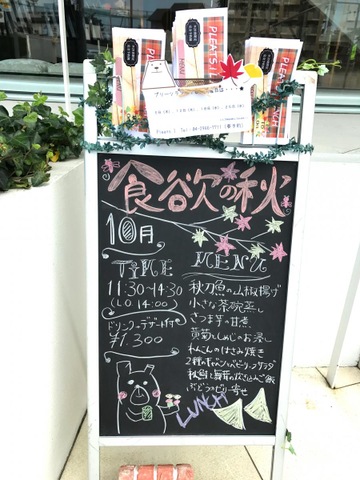 PLEATS.I
食欲の秋
10月
TIME
11:30~14:30
(LO 14:00)
ドリンク・デザート付
¥1,300
MENU
秋刀魚の山椒揚げ
小さな茶碗蒸し
さつま芋の甘煮
黄菊としめじのお浸し
れんこんのはさみ焼き
2種のキャベツのベビーリーフサラダ
秋鮭と舞茸の炊き込みご飯
ぶどうのゼリー寄せ
LUNCH